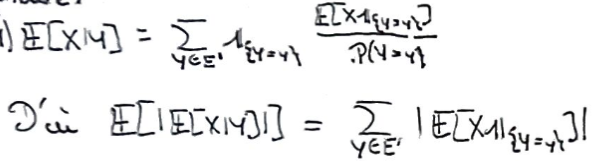 1) 𝔼[X|Y] = ∑_{y∈E'} 𝟙_{Y=y} 𝔼[X𝟙_{Y=y}] / P(Y=y)
D'où 𝔼[|𝔼[X|Y]|] = ∑_{y∈E'} |𝔼[X𝟙_{Y=y}]|